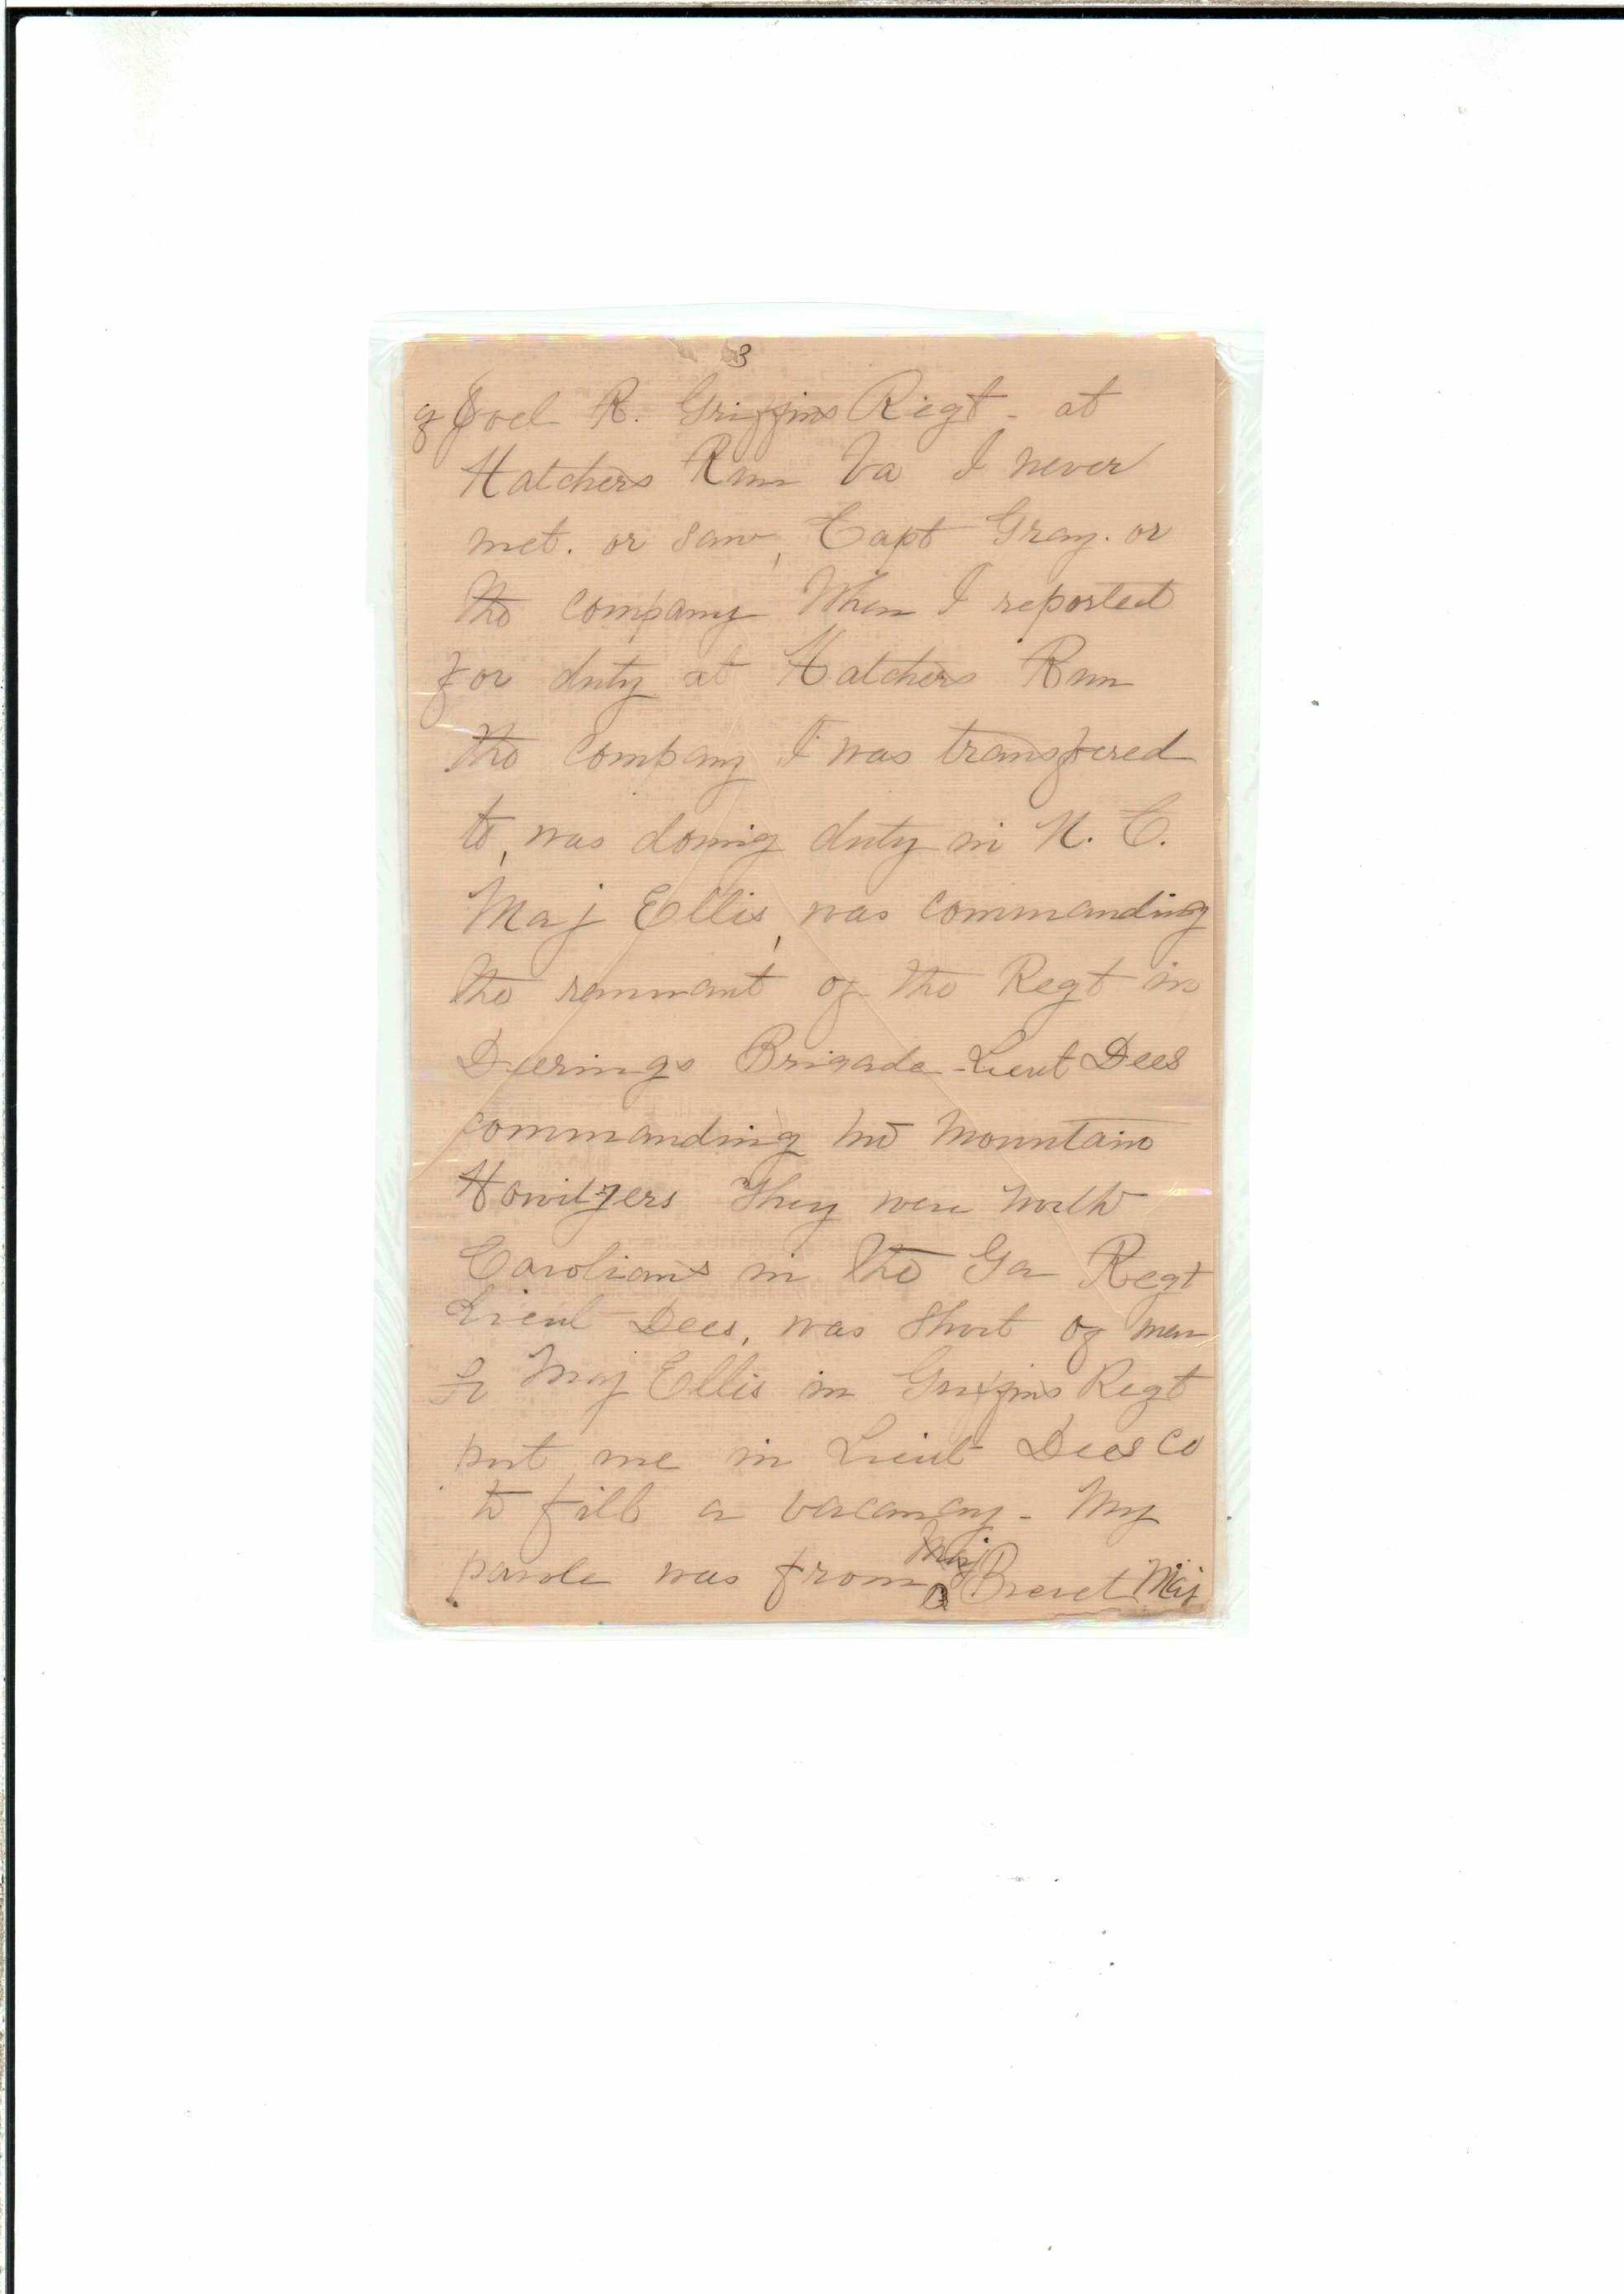 3
of Joel R. Griffins Regt - at
Hatchers Run Va I never
met. or saw, Capt Gray. or
the company When I reported
for duty at Hatchers Run
the company I was transfered
to, was doing duty in N. C.
Maj Ellis, was commanding
the remnant of the Regt in
Deerings Brigade - Lieut Dees
commanding two Mountain
Howitzers They were North
Carolians in the Ga Regt
Lieut Dees, was Short of men
So Maj Ellis in Griffins Regt
put me in Lieut Dees Co
to fill a vacancy - My
parole was from Maj Brevet Maj